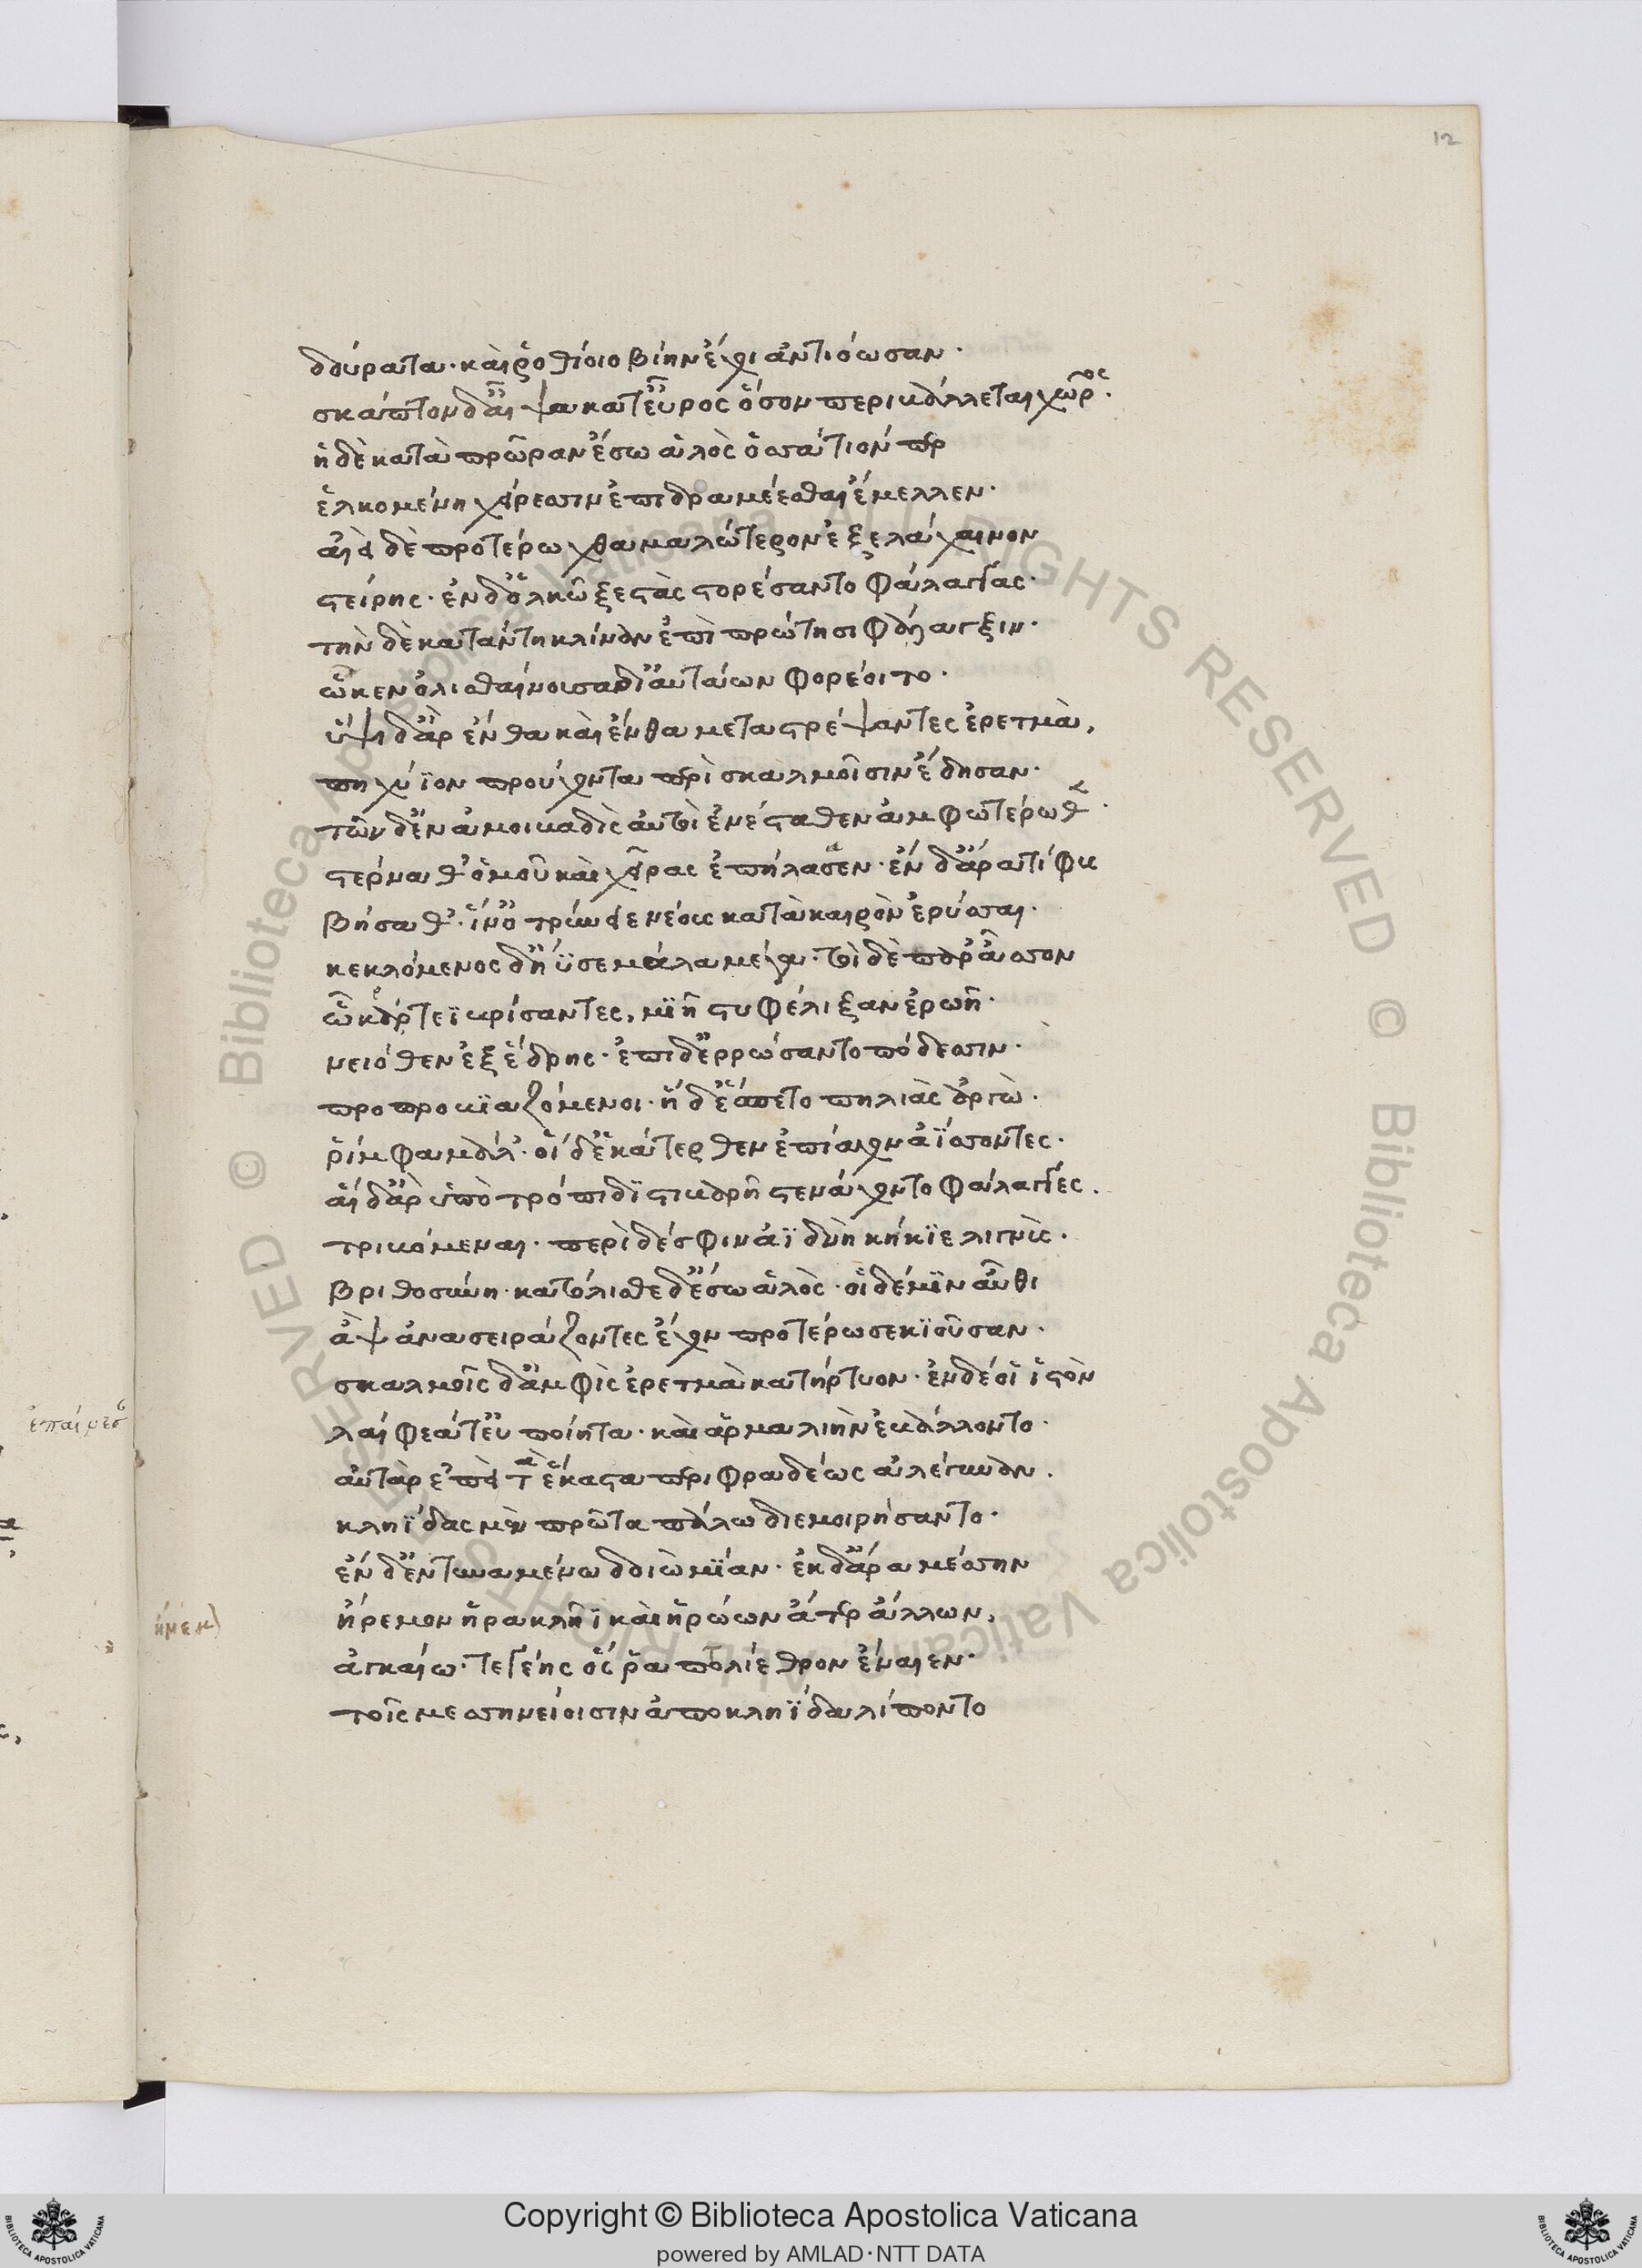 12
δούρατα· καὶ ῥοθίοιο βίην ἔχοι ἀντιόωσαν·
σκάπτον δ' αἶψα κατ' εὖρος ὅσον περιβάλλεται χῶρος·
ἠδὲ κατὰ πρῶραν ἔσω ἁλὸς ὁσσάτιόν περ
ἑλκομένη χείρεσσιν ἐπιδραμέεσθαι ἔμελλεν·
αἰεὶ δὲ προτέρω χθαμαλώτερον ἐξελάχαινον
στείρης· ἐν δ' ὁλκῷ ξεστὰς στορέσαντο φάλαγγας·
τὴν δὲ κατάντη κλῖναν ἐπὶ πρώτῃσι φάλαγξιν·
ὥς κεν ὀλισθαίνουσα δι' αὐτάων φορέοιτο·
ὕψι δ' ἄρ ἔνθα καὶ ἔνθα μεταστρέψαντες ἐρετμὰ,
πηχύϊον προύχοντα περὶ σκαλμοῖσιν ἔδησαν·
τῶν δ' ἐναμοιβαδὶς αὐτοὶ ἐνέσταθεν ἀμφοτέρωθεν·
στέρνα θ' ὁμοῦ καὶ χεῖρας ἐπήλασαν· ἐν δ' ἄρα τίφυς
βήσαθ'· ἵν' ὀτρύνειε νέους κατὰ καιρὸν ἐρύσσαι·
κεκλόμενος δ' ἤϋσε μάλα μέγα· τοὶ δὲ παρᾶσσον
ᾧ κάρτεϊ βρίσαντες, μιῇ στυφέλιξαν ἐρωῇ·
νειόθεν ἐξ ἕδρης· ἐπὶ δ' ἐρρώσαντο πόδεσσιν·
προπροβιαζόμενοι· ἡ δ' ἕσπετο πηλιὰς ἀργὼ·
ῥίμφα μάλ'· οἱ δ' ἑκάτερθεν ἐπίαχον ἀΐσσοντες·
αἱ δ' ἄρ' ὑπὸ τρόπιδι στιβαρῇ στενάχοντο φάλαγγες·
τριβόμεναι· περὶ δέ σφιν ἀϊδνὴ κήκιε λιγνὺς·
βριθοσύνῃ· κατόλισθε δ' ἔσω ἁλὸς· οἱ δέ μιν αὖθι
ἂψ ἀνασειράζοντες ἔχον προτέρωσε κιοῦσαν·
σκαλμοῖς δ' ἀμφὶς ἐρετμὰ κατήρτυον· ἐν δέ οἱ ἱστὸν
λαίφεά τ' εὐποίητα· καὶ ἁρμαλιὴν ἐβάλλοντο·
αὐτὰρ ἐπεὶ τὰ ἕκαστα περιφραδέως ἀλέγυναν·
κληῗδας μὲν πρῶτα πάλῳ διεμοιρήσαντο·
ἄνδρ' ἐντυναμένω δοιὼ μίαν· ἐκ δ' ἄρα μέσσην
ᾕρεον ἡρακλῆϊ καὶ ἡρώων ἄτερ ἄλλων,
ἀγκαίῳ· τεγέης ὅς ῥα πτολίεθρον ἔναιεν·
τοῖς μέσσην οἴοισιν ἀπὸ κληῗδα λίποντο
Copyright © Biblioteca Apostolica Vaticana
powered by AMLAD·NTT DATA
© Biblioteca Apostolica Vaticana ALL RIGHTS RESERVED